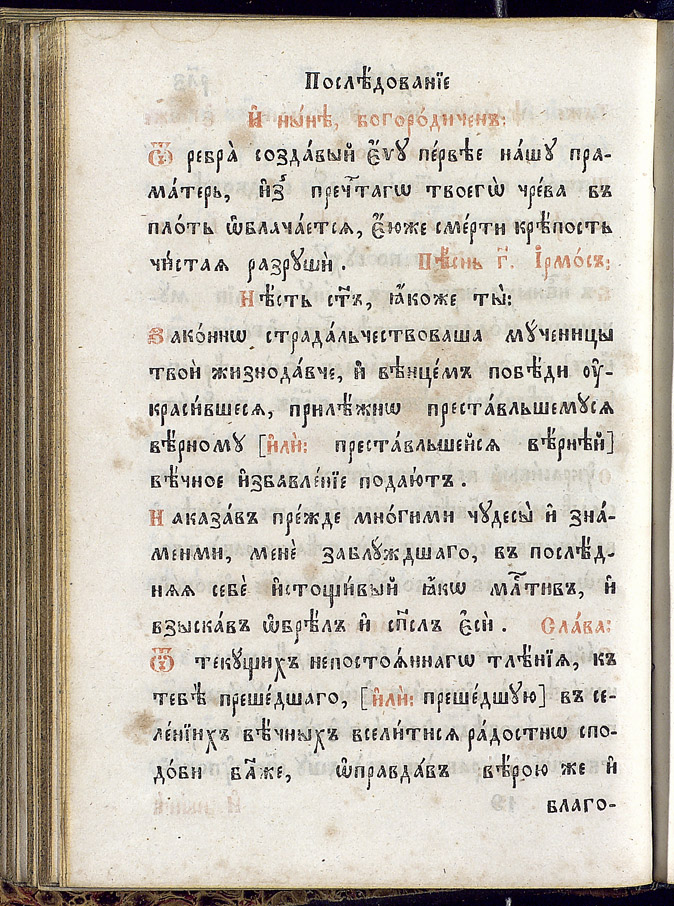 Послѣ́дованїе
И҆ ны́нѣ, богоро́диченъ:
Ѿ ребра̀ созда́вый є҆́ѵу пе́рвѣе на́шу пра-
ма́терь, и҆з̾ пречⷭ҇тагѡ твоегѡ̀ чре́ва въ
пло́ть ѡ҆блача́етсѧ, є҆́юже сме́рти крѣ́пость
чи́стаѧ разрꙋшѝ. Пѣ́снь г҃. І҆рмо́съ:
Нѣ́сть ст҃ъ, ꙗ҆́коже ты̀:
Зако́ннѡ страда́льчествоваша мꙋ́ченицы
твоѝ жизнода́вче, и҆ вѣнце́мъ побѣ́ды ᲂу҆-
краси́вшесѧ, прилѣ́жнѡ преста́вльшемꙋсѧ
вѣ́рномꙋ [и҆лѝ: преста́вльшейсѧ вѣ́рнѣй]
вѣ́чное и҆збавле́нїе подаю́тъ.
Наказа́въ пре́жде мно́гими чꙋдесы̀ и҆ зна́-
меньми, менѐ заблꙋ́ждшаго, въ послѣ́д-
нѧѧ себѐ и҆стощи́вый ꙗ҆́кѡ млⷭ҇тивъ, и҆
взыска́въ ѡ҆брѣ́лъ и҆ сп҃слъ є҆сѝ. Сла́ва:
Ѿ текꙋ́щихъ непостоѧ́ннагѡ тлѣ́нїѧ, къ
тебѣ̀ преше́дшаго, [и҆лѝ: преше́дшꙋю] въ се-
ле́нїихъ вѣ́чныхъ всели́тисѧ ра́достнѡ спо-
до́би бл҃же, ѡ҆правда́въ вѣ́рою же и҆
благо-